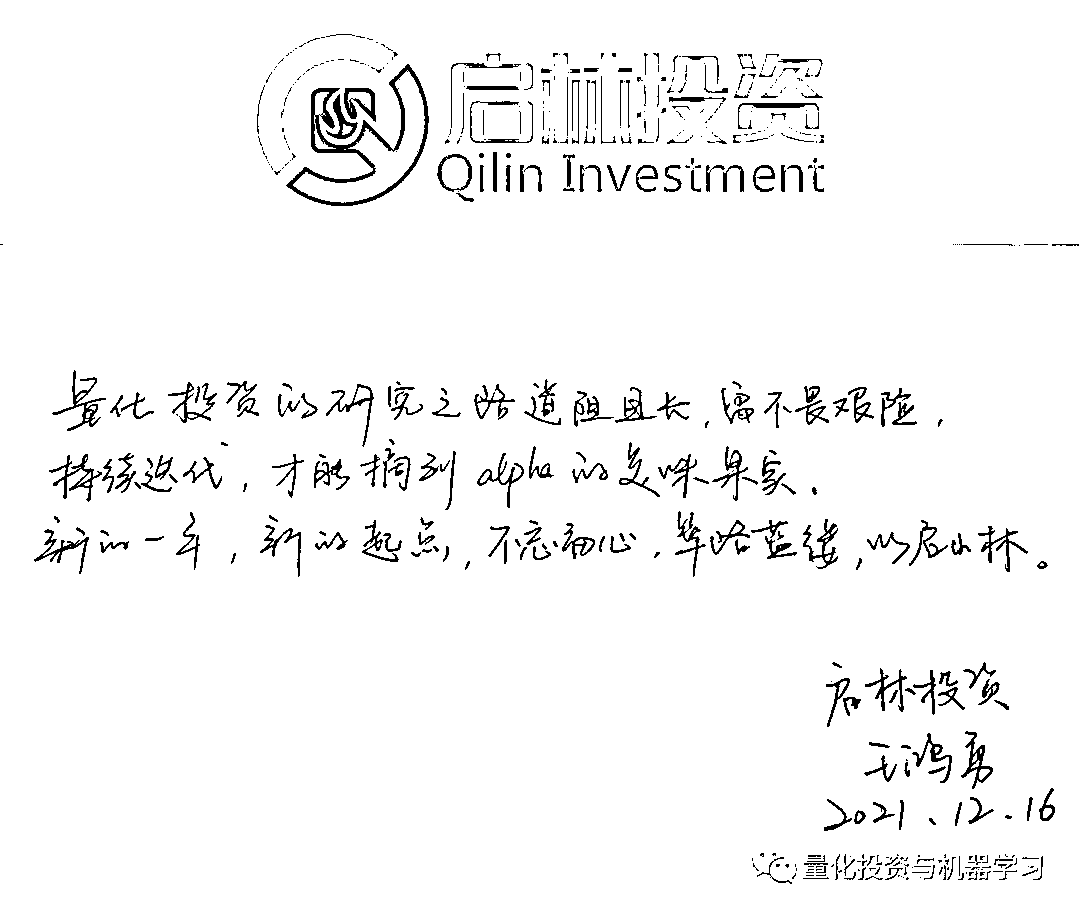 启林投资
Qilin Investment
量化投资的研究之路道阻且长,需不畏艰险,
持续迭代,才能摘到alpha的美味果实.
新的一年,新的起点,不忘初心,筚路蓝缕,以启山林。
启林投资
王鸿勇
2021.12.16
量化投资与机器学习